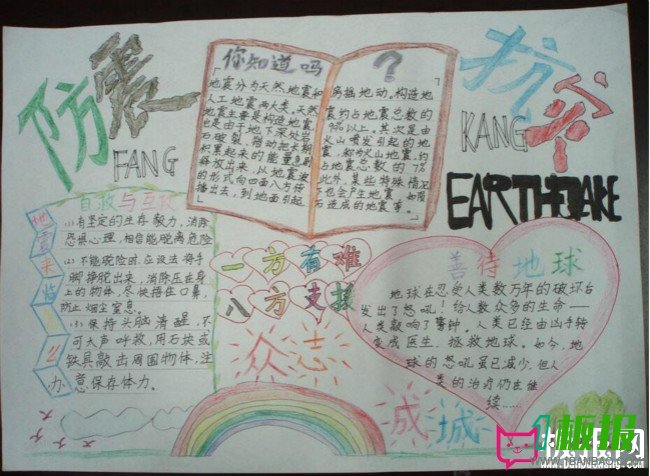 防震
FANG
抗灾
KANG
EARTHQUAKE
你知道吗?
地震分为天然地震和
人工地震两大类。天然
地震主要是构造地震,
它是由于地下深处岩
石破裂、错动把长期
积累起来的能量急剧
释放出来,以地震波
的形式向四面八方传
播出去,到地面引起
房摇地动,构造地
震约占地震总数的
90%以上。其次是由
火山喷发引起的地
震,称为火山地震,约
占地震总数的7%
此外,某些特殊情况
下也会产生地震,如陨
石造成的地震等。
自救与互救
(1)有坚定的生存毅力,消除
恐惧心理,相信能脱离危险
(2)不能脱险时,应设法将手
脚挣脱出来,消除压在身
上的物体,尽快捂住口鼻,
防止烟尘窒息。
(3)保持头脑清醒,不
可大声呼救,用石块或
铁具敲击周围物体,注
意保存体力。
地震来临
办
一方有难
八方支援
众志
成城
善待地球
地球在忍受人类数万年的破坏后
发出了怒吼!给人数众多的生命——
人类敲响了警钟。人类已经由凶手转
变成医生,拯救地球。如今,地
球的怒吼虽已减少,但人
类的治疗仍在继
续……
板报网